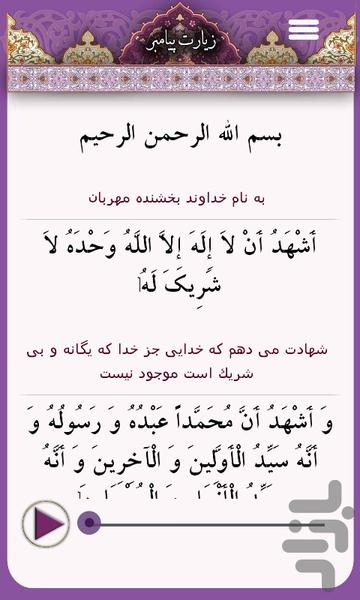 زیارت پیامبر
بسم الله الرحمن الرحیم
به نام خداوند بخشنده مهربان
أشْهَدُ أنْ لاَ إلَهَ إلاَّ اللَّهُ وَحْدَهُ لاَ
شَرِیکَ لَهُ
شهادت می دهم که خدایی جز خدا که یگانه و بی
شریك است موجود نیست
وَ أشْهَدُ أنَّ مُحَمَّداً عَبْدُهُ وَ رَسُولُهُ وَ
أنَّهُ سَیِّدُ الْأوَّلِینَ وَ الْآخِرِینَ وَ أنَّهُ
بازار